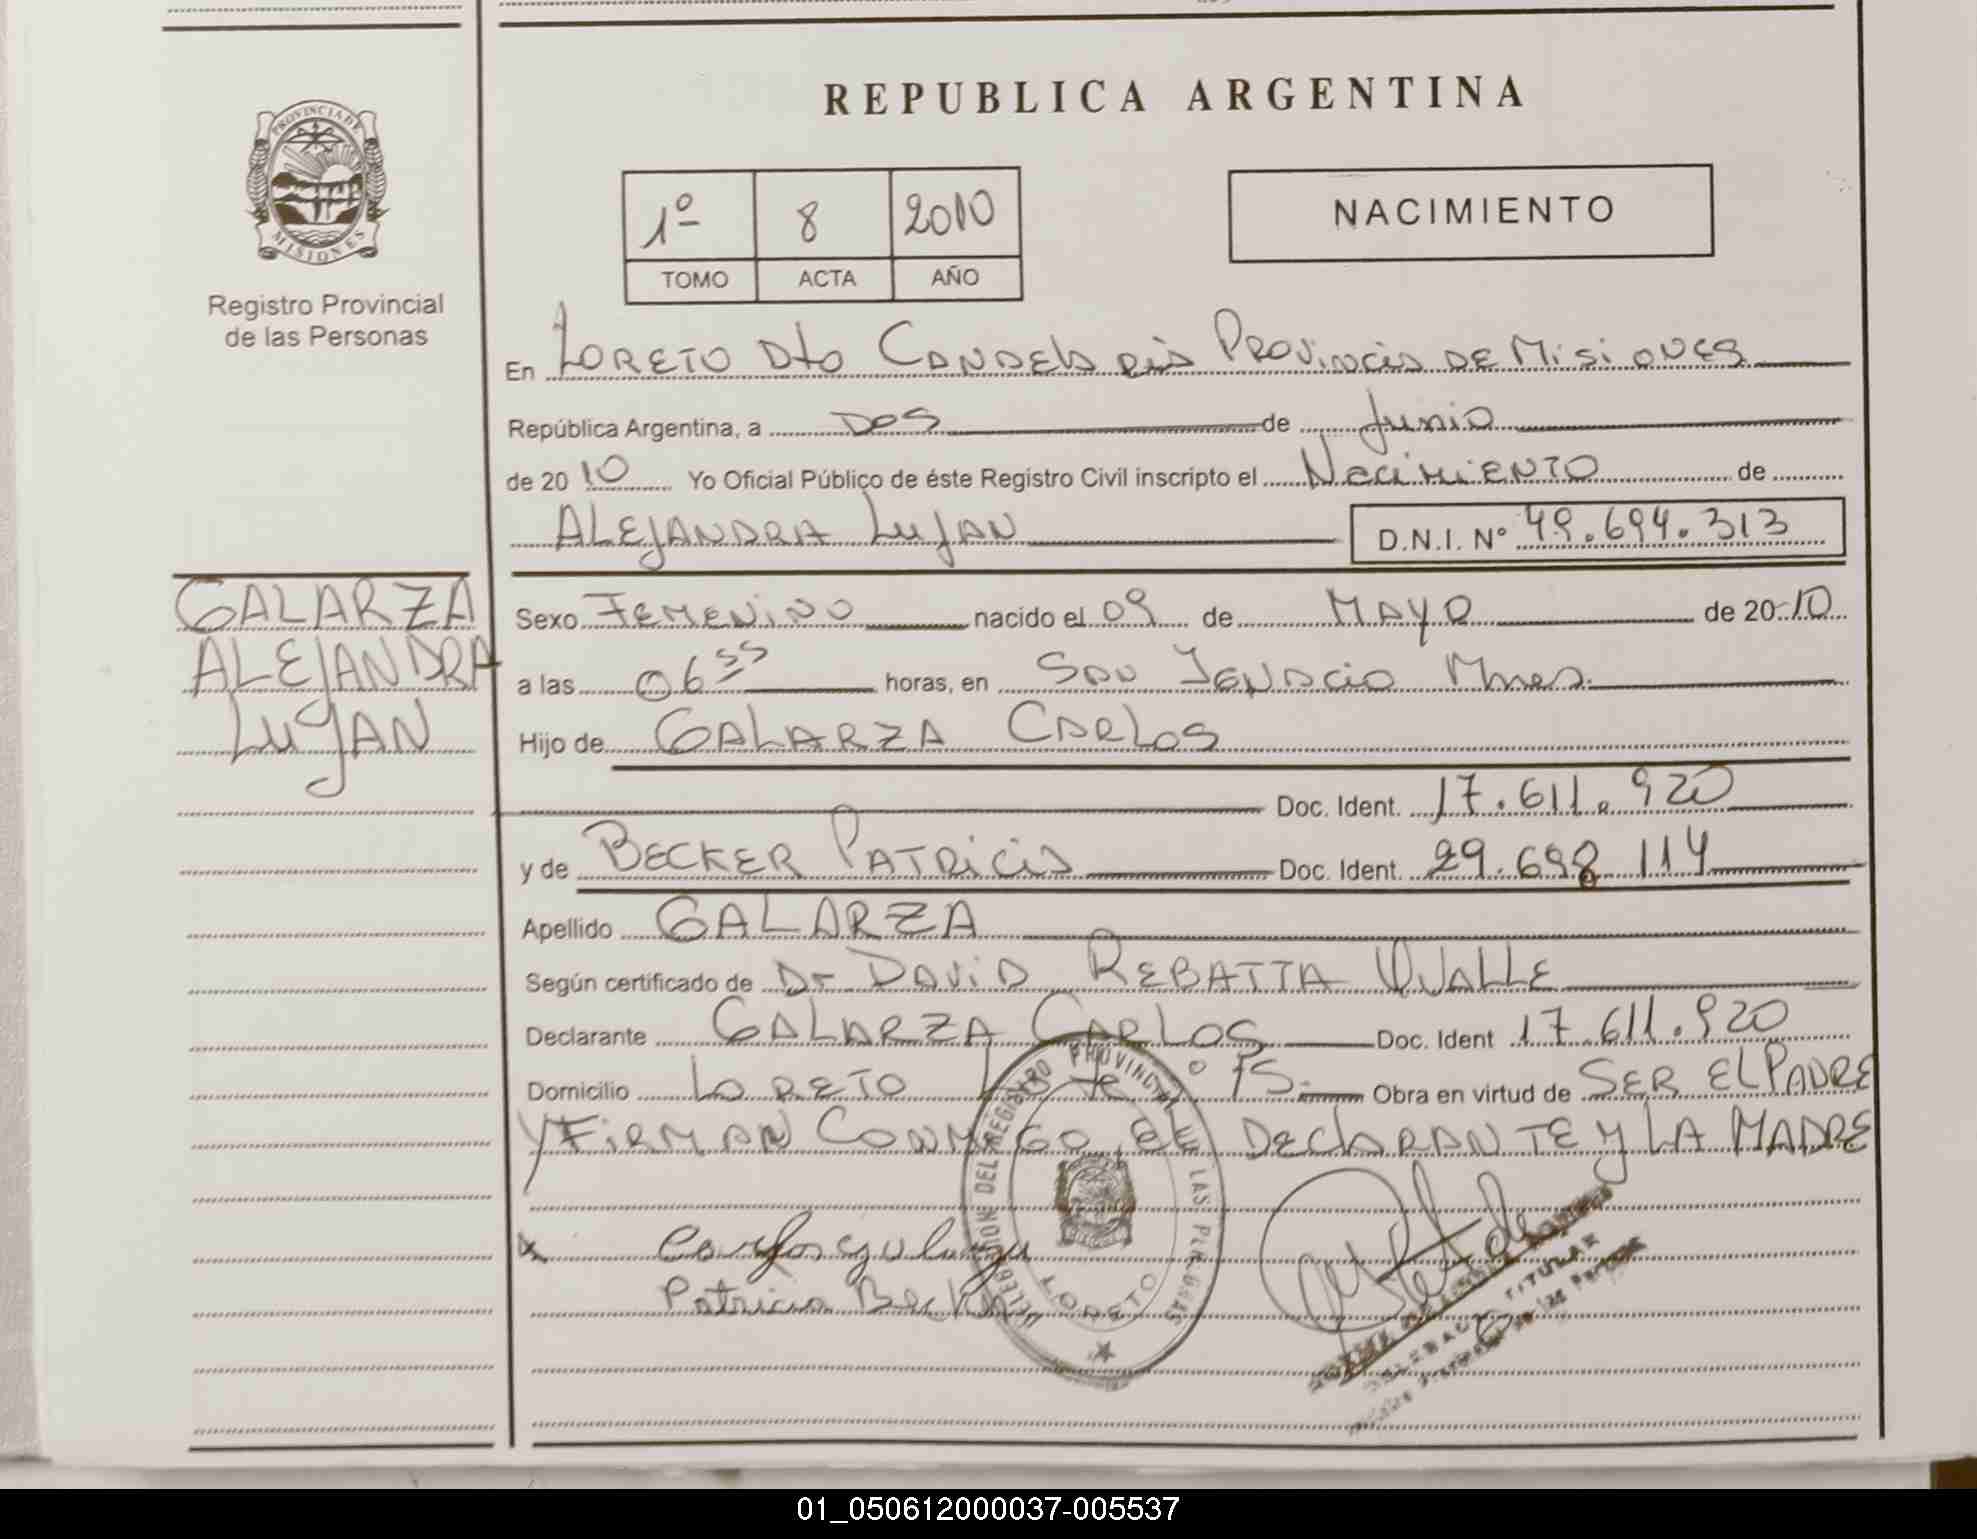 REPUBLICA ARGENTINA
PROVINCIA DE
MISIONES
Registro Provincial
de las Personas
1º 8 2010
TOMO ACTA AÑO
NACIMIENTO
En LORETO Dto CANDELARIA PROVINCIA DE MISIONES
República Argentina, a DOS de Junio
de 2010 Yo Oficial Público de éste Registro Civil inscripto el NACIMIENTO de
ALEJANDRA LUJAN D.N.I. Nº 49.694.313
GALARZA
ALEJANDRA
LUJAN
Sexo FEMENINO nacido el 09 de MAYO de 2010
a las 06 55 horas, en SAN IGNACIO Mnes.
Hijo de GALARZA CARLOS
Doc. Ident. 17.611.920
y de BECKER PATRICIA Doc. Ident. 29.698 114
Apellido GALARZA
Según certificado de Dr DAVID REBATTA
Declarante GALARZA CARLOS Doc. Ident 17.611.920
Domicilio LORETO 75 Obra en virtud de SER EL PADRE
Y FIRMAN CONMIGO EL DECLARANTE Y LA MADRE
x Carlos galarza
Patricia Becker
DELEGACION DEL REGISTRO PROVINCIAL DE LAS PERSONAS
LORETO
TITULAR
01_050612000037-005537